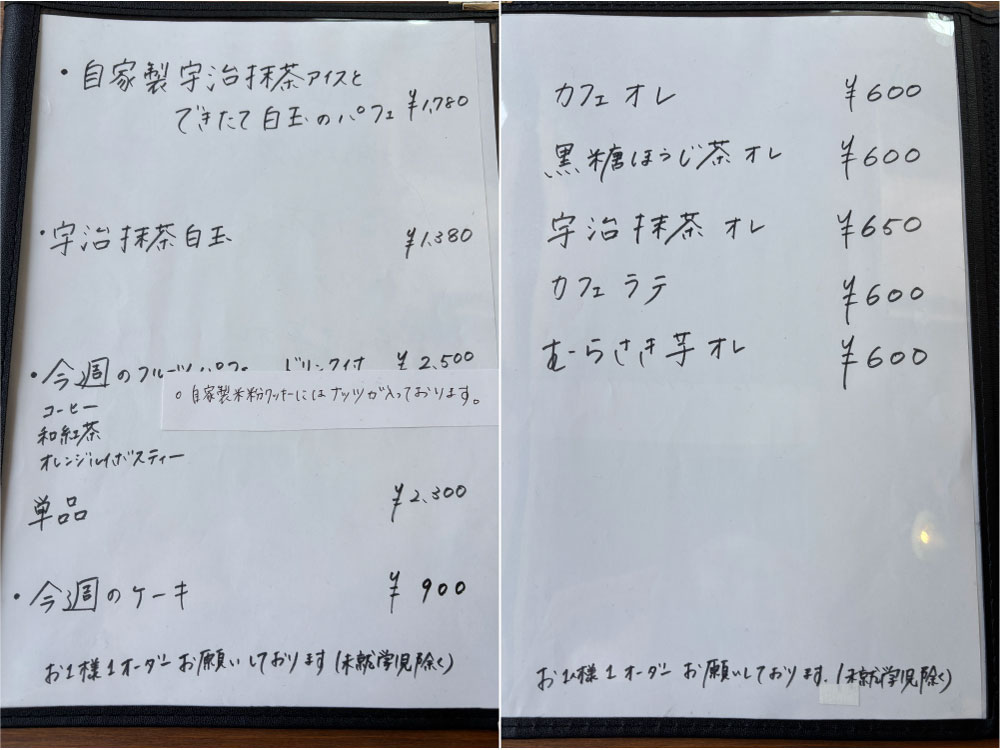 ・自家製宇治抹茶アイスと
できたて白玉のパフェ ¥1,780
・宇治抹茶白玉 ¥1,380
・今週のフルーツパフェ ドリンク付 ¥2,500
○自家製米粉クッキーにはナッツが入っております。
コーヒー
和紅茶
オレンジルイボスティー
単品 ¥2,300
・今週のケーキ ¥900
お1様1オーダーお願いしております(未就学児除く)
カフェオレ ¥600
黒糖ほうじ茶オレ ¥600
宇治抹茶オレ ¥650
カフェラテ ¥600
むらさき芋オレ ¥600
お1人様1オーダーお願いしております.(未就学児除く)